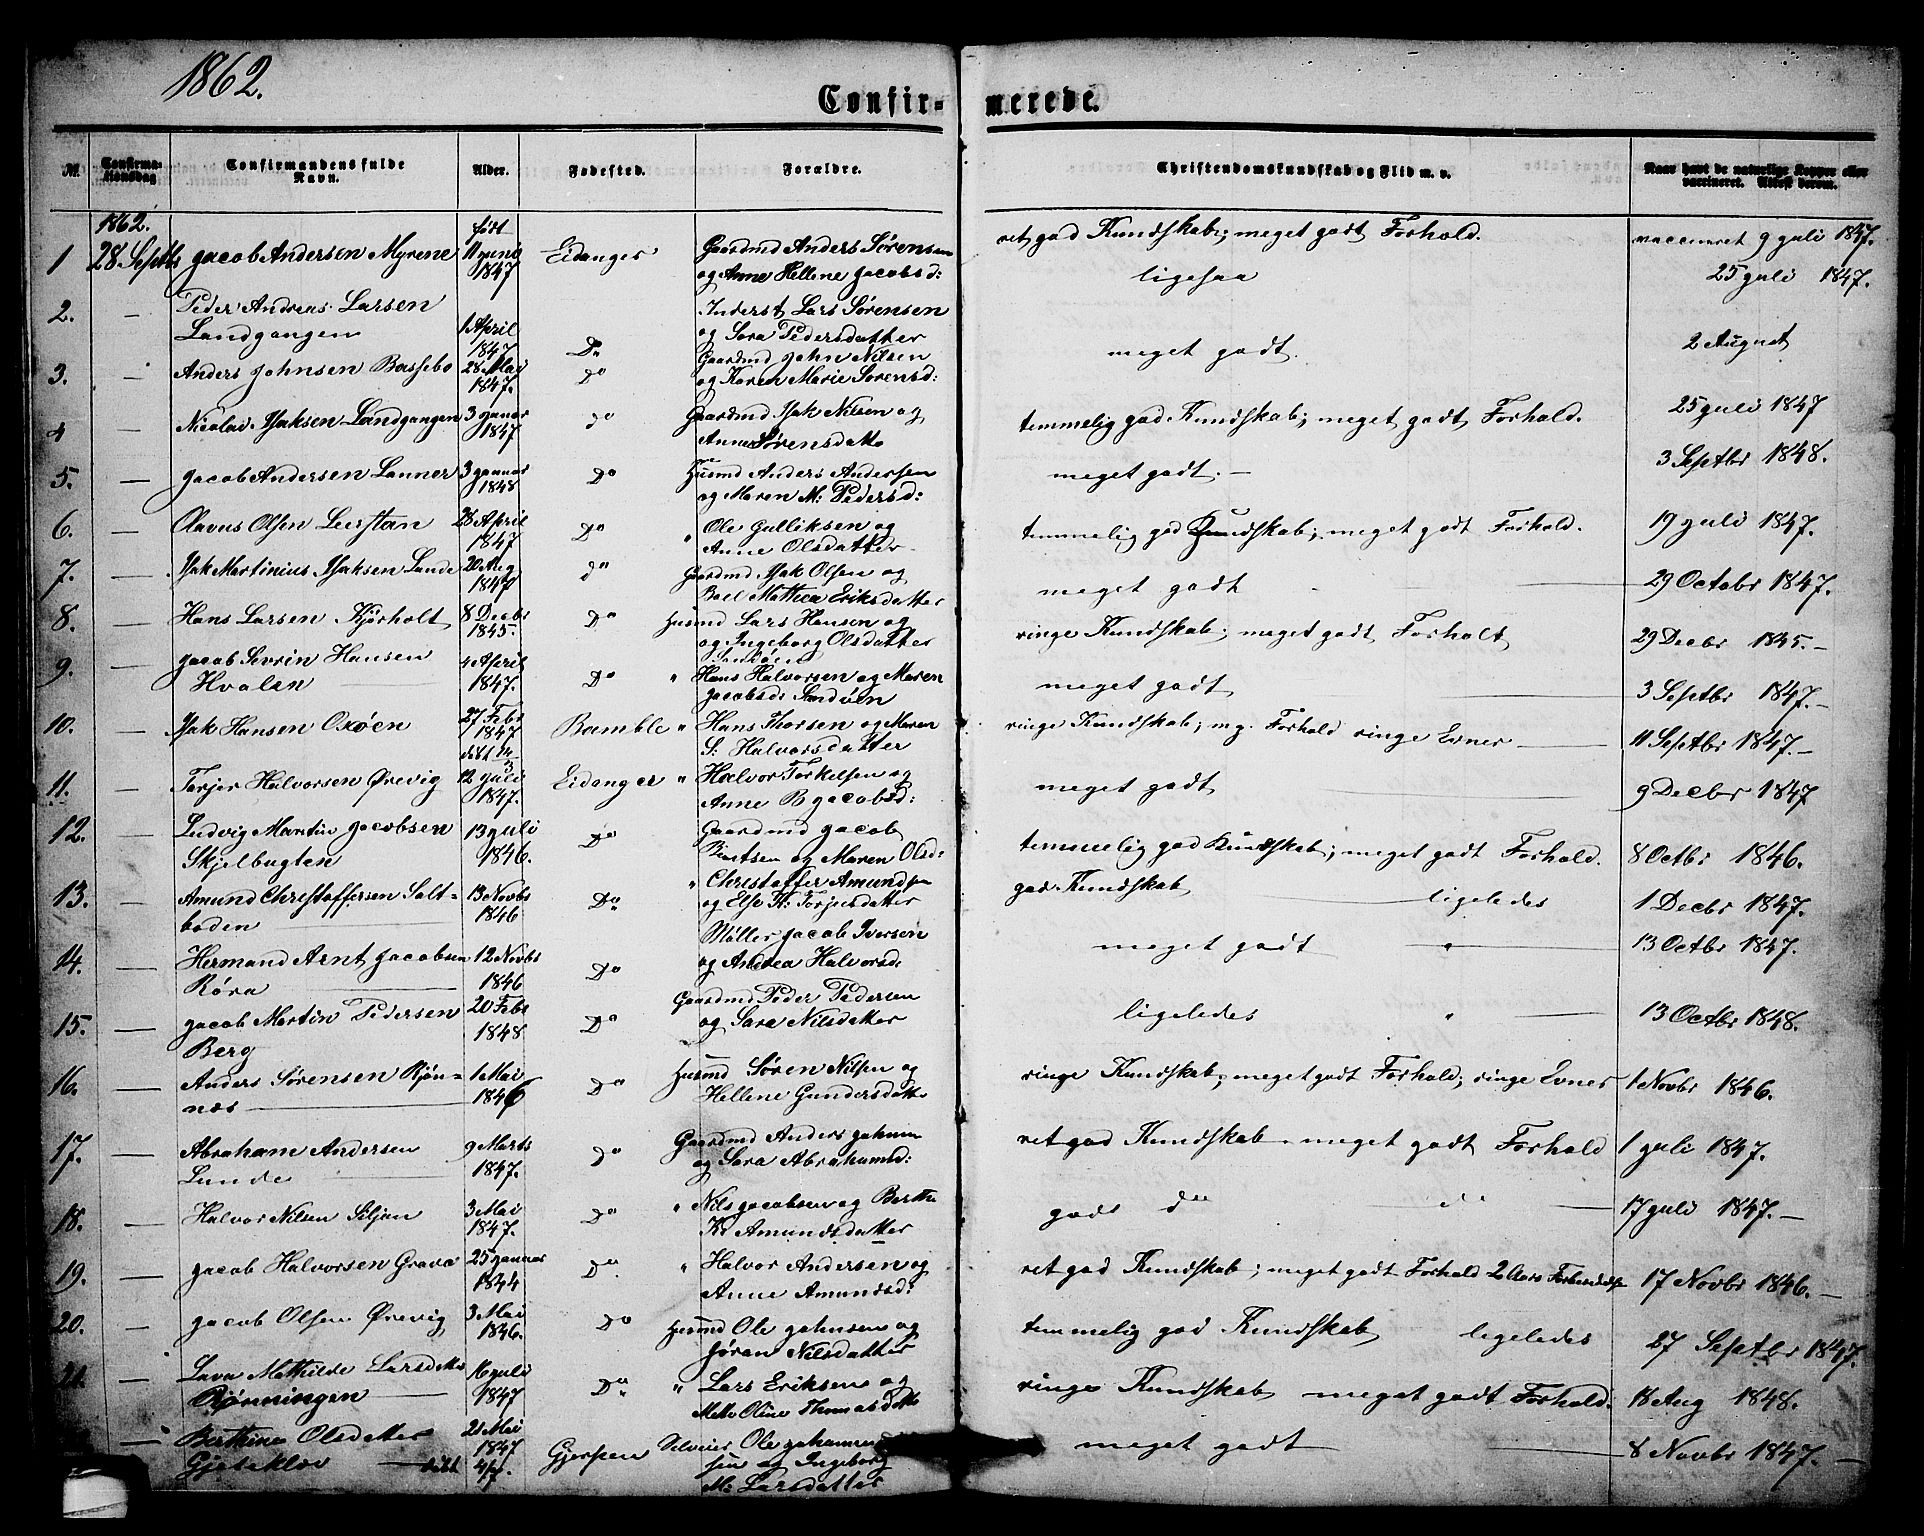 1862.
Confir- merede.
№.
Confirma-
tionsdag
Confirmandens fulde
Navn.
Alder.
Fødested.
Forældre.
Christendomskundskab og Flid m. v.
Naar havt de naturlige Kopper eller
vaccineret. Attest derom.
1862.
født
1 28 Septbr Jacob Andersen Myrene 11 Juni 1847 Eidanger Gaardmd Anders Sørensen
og Anne Hellene Jacobsd: ret god Kundskab; meget godt Forhold. vaccineret 9 Juli 1847.
2. — Peder Andreas Larsen
Landgangen 1 April 1847 Do Inderst Lars Sørensen
og Sara Pedersdatter ligesaa 25 Juli 1847.
3. — Anders Johnsen Bassebo 28 Mai 1847. Do Gaardmd John Nilsen
og Karen Marie Sørensd: meget godt. 2 August
4 — Nicolai Isaksen Landgangen 3 Januar 1847 Do Gaardmd Isak Nilsen og
Anne Sørensdatter temmelig god Kundskab; meget godt Forhold. 25 Juli 1847
5. — Jacob Andersen Lanner 3 Januar 1848 Do Husmd Anders Andersen
og Maren M: Pedersd: meget godt. — 3 Septbr 1848.
6. — Olavus Olsen Leerstan 28 April 1847 Do " Ole Gulliksen og
Anne Olsdatter temmelig god Kundskab; meget godt Forhold. 19 Juli 1847.
7. — Isak Martinius Isaksen Lunde 20 Aug 1847 Do Gaardmd Isak Olsen og
Boel Mathea Eriksdatter meget godt 29 Octobr 1847.
8. — Hans Larsen Kjørholt 8 Decbr 1845. Do Husmd Lars Hansen og
og Ingeborg Olsdatter ringe Kundskab; meget godt Forholt 29 Decbr 1845. —
9. — Jacob Sevrin Hansen
Hvalen 4 April 1847. Do " Hans Halvorsen og Maren
Jacobsd: Sandøen meget godt 3 Septbr 1847. —
10. — Isak Hansen Oxøen 27 Febr 1847 døbt Bamble " Hans Thorsen og Maren
S: Halvorsdatter ringe Kundskab; mg. Forhold ringe Evner — 11 Septbr 1847. —
11. — Tarjer Halvorsen Ørevig 12 Juli 1847. Eidanger " Halvor Torkelsen og
Anne B Jacobsd: meget godt 9 Decbr 1847
12. — Ludvig Martin Jacobsen
Skjelbugten 13 Juli 1846. Do Gaardmd Jacob
og Maren Olsd: temmelig god Kundskab; meget godt Forhold. 8 Octbr 1846.
13. — Amund Christoffersen Salt-
boden 13 Novbr 1846 Do " Christoffer Amundsen
og Else K: Torjusdatter god Kundskab ligeledes 1 Decbr 1847.
14. — Hermand Arnt Jacobsen
Røra 12 Novbr 1846 Do Møller Jacob Iversen
og Andrea Halvorsd: meget godt " 13 Octbr 1847.
15. — Jacob Martin Pedersen
Berg 20 Febr 1848 Do Gaardmd Peder Pedersen
og Sara Nilsdatter ligeledes " 13 Octbr 1848.
16. — Anders Sørensen Rjøn-
næs 1 Mai 1846 Do Husmd Søren Nilsen og
Hellene Gundersdatter ringe Kundskab; meget godt Forhold; ringe Evner 1 Novbr 1846.
17. — Abraham Andersen
Lunde 9 Marts 1847. Do Gaardmd Anders Johnsen
og Sara Abrahamsd: ret god Kundskab meget godt Forhold 1 Juli 1847.
18. — Halvor Nilsen Siljan 3 Mai 1847. Do " Nils Jacobsen og Berthe
K: Amundsdatter godt do do 17 Juli 1847. —
19. — Jacob Halvorsen Grava 25 Januar 1844 Do " Halvor Andersen og
Anne Amundsd: ret god Kundskab; meget godt Forhold 2 Aars 17 Novbr 1846. —
20. — Jacob Olsen Ørevig 3 Mai 1846. Do Husmd Ole Johnsen og
Jøran Nilsdatter temmelig god Kundskab ligeledes 27 Septbr 1847.
21. Lava Mathilde Larsdatter
Rønningen 16 Juli 1847 Do " Lars Eriksen og
Mette Oline Thomasdatter ringe Kundskab meget godt Forhold. 18 Aug 1848.
— Berthine Olsdatter
døbt 21 Mai 1847 4/7. Gjerpen Selveier Ole Johannes-
sen og Ingeborg
M: Larsdatter meget godt 8 Novbr 1847. —